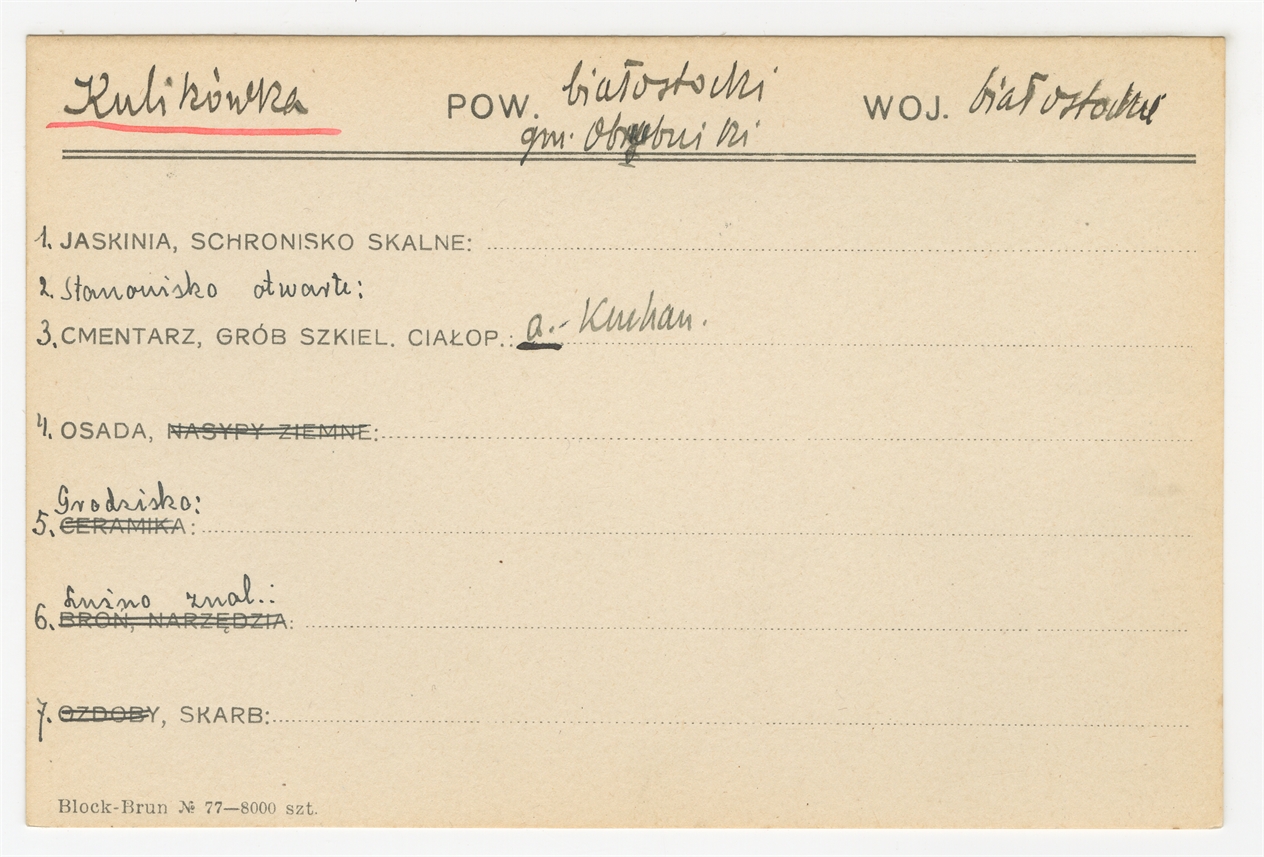 Kulikówka POW. białostocki WOJ. białostockie
gm. Obrębniki
1. JASKINIA, SCHRONISKO SKALNE:
2. Stanowisko otwarte:
3. CMENTARZ, GRÓB SZKIEL. CIAŁOP.: a.- Kurhan.
4. OSADA, NASYPY ZIEMNE:
Grodzisko:
5. CERAMIKA:
Luźno znal.:
6. BROŃ, NARZĘDZIA:
7. OZDOBY, SKARB:
Block-Brun № 77—8000 szt.